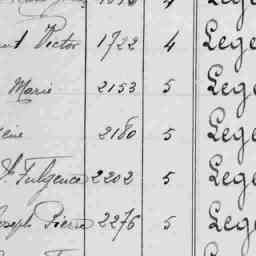 Victor 1722 4 Lege
Marie 2153 5 Lege
2180 5 Lege
St Fulgence 2202 5 Lege
Joseph Pierre 2276 5 Lege